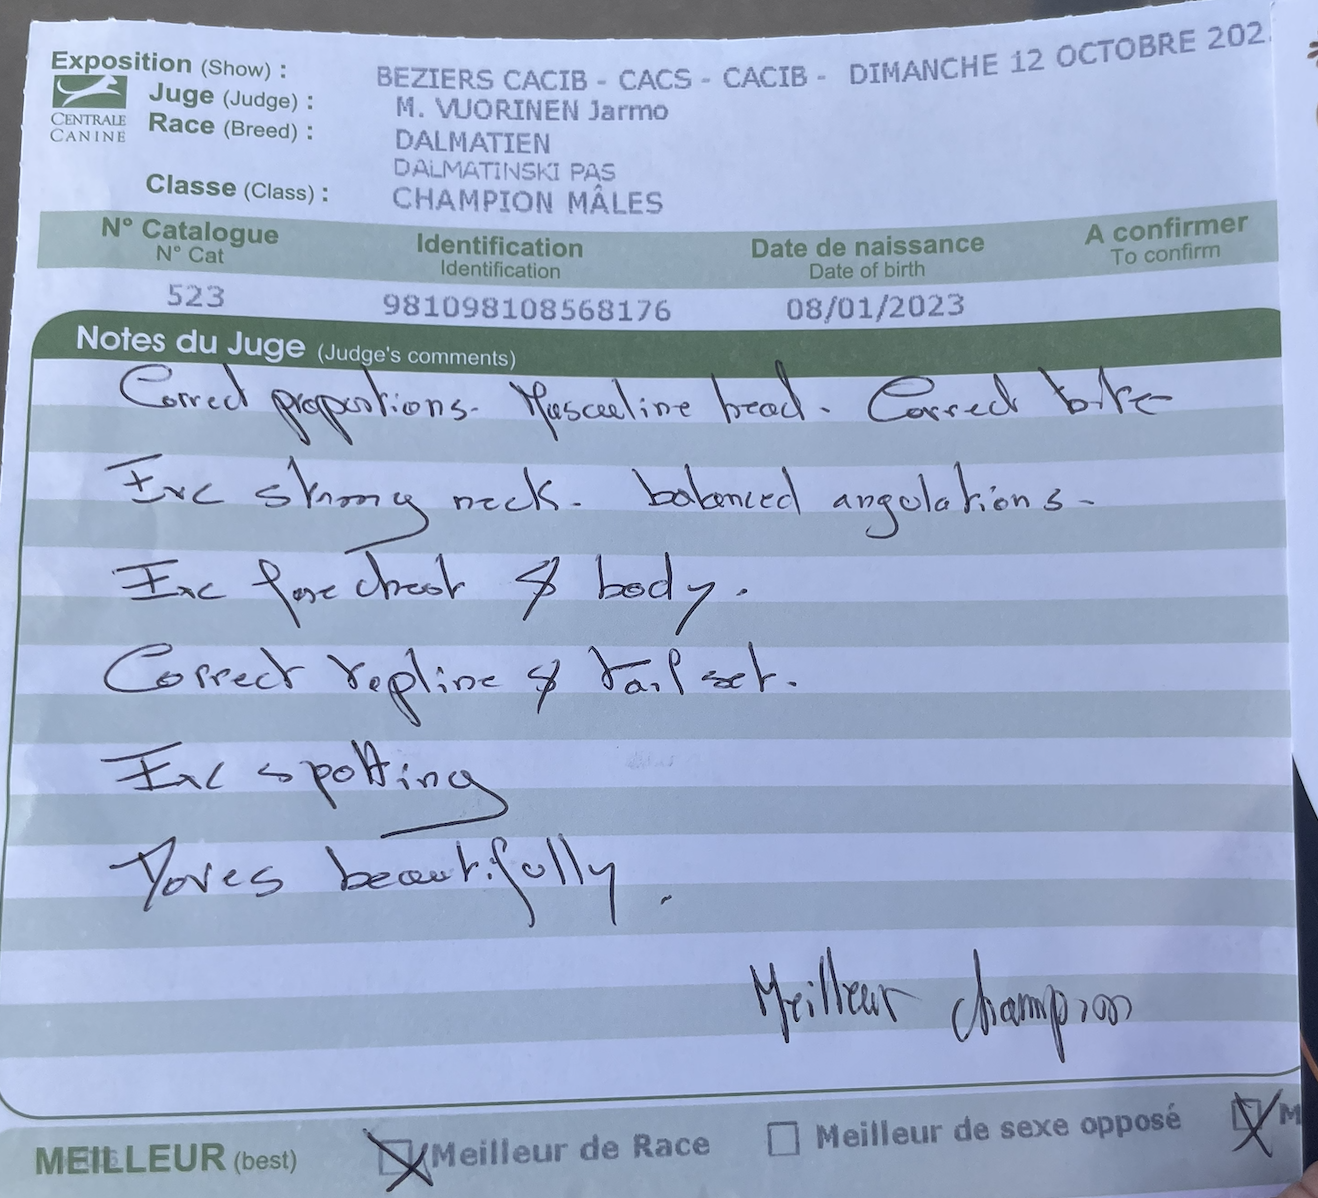 Exposition (Show) : BEZIERS CACIB - CACS - CACIB - DIMANCHE 12 OCTOBRE 202
CENTRALE CANINE
Juge (Judge) : M. VUORINEN Jarmo
Race (Breed) : DALMATIEN
DALMATINSKI PAS
Classe (Class) : CHAMPION MÂLES
N° Catalogue Identification Date de naissance A confirmer
N° Cat Identification Date of birth To confirm
523 981098108568176 08/01/2023
Notes du Juge (Judge's comments)
Correct proportions. Masculine head. Correct bite
Exc strong neck. balanced angulations.
Exc forechest & body.
Correct topline & tail set.
Exc spotting
Moves beautifully.
Meilleur champion
MEILLEUR (best) Meilleur de Race Meilleur de sexe opposé M